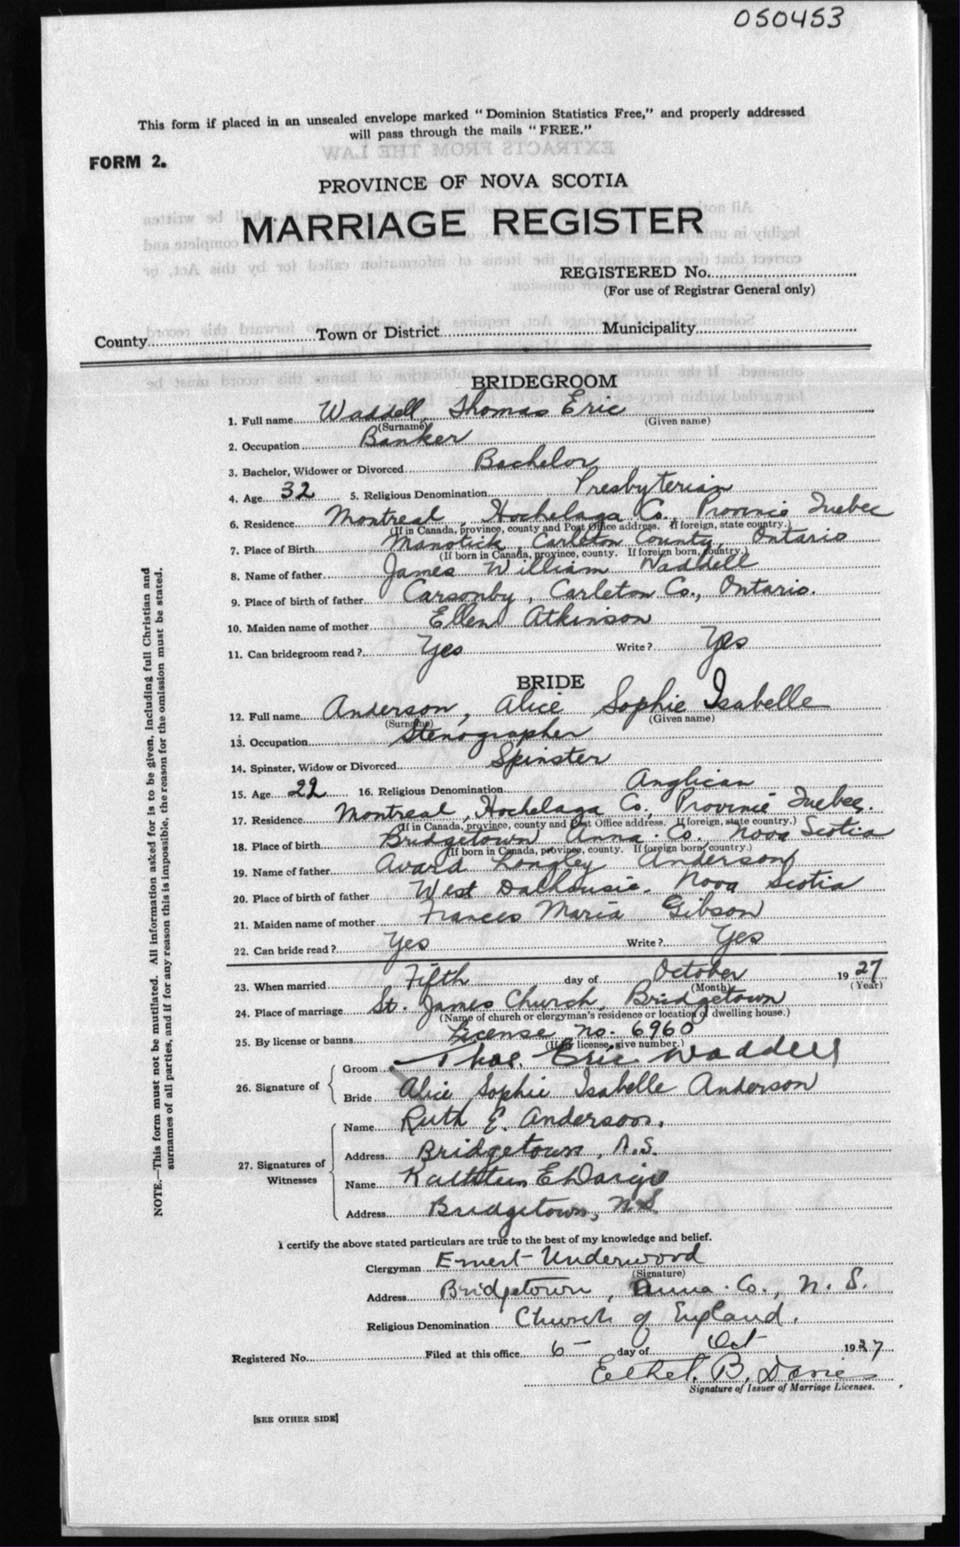 050453
This form if placed in an unsealed envelope marked "Dominion Statistics Free," and properly addressed
will pass through the mails "FREE."
FORM 2.
PROVINCE OF NOVA SCOTIA
MARRIAGE REGISTER
REGISTERED No.
(For use of Registrar General only)
County Town or District Municipality
BRIDEGROOM
1. Full name Waddell, Thomas Eric
(Surname) (Given name)
2. Occupation Banker
3. Bachelor, Widower or Divorced Bachelor
4. Age 32 5. Religious Denomination Presbyterian
6. Residence Montreal, Hochelaga Co., Province Quebec
(If in Canada, province, county and Post Office address. If foreign, state country.)
7. Place of Birth Manotick, Carleton County, Ontario
(If born in Canada, province, county. If foreign born, country.)
8. Name of father James William Waddell
9. Place of birth of father Carsonby, Carleton Co., Ontario.
10. Maiden name of mother Ellen Atkinson
11. Can bridegroom read? Yes Write? Yes
BRIDE
12. Full name Anderson, Alice Sophie Isabelle
(Surname) (Given name)
13. Occupation Stenographer
14. Spinster, Widow or Divorced Spinster
15. Age 22 16. Religious Denomination Anglican
17. Residence Montreal, Hochelaga Co, Province Quebec.
(If in Canada, province, county and Post Office address. If foreign, state country.)
18. Place of birth Bridgetown Anna. Co. Nova Scotia
(If born in Canada, province, county. If foreign born, country.)
19. Name of father Avard Longley Anderson
20. Place of birth of father West Dalhousie. Nova Scotia
21. Maiden name of mother Frances Maria Gibson
22. Can bride read? Yes Write? Yes
23. When married Fifth day of October 1927
(Month) (Year)
24. Place of marriage St. James Church, Bridgetown
(Name of church or clergyman's residence or location of dwelling house.)
25. By license or banns License no. 6960
(If by license, give number.)
26. Signature of Groom Thos. Eric Waddell
Bride Alice Sophie Isabelle Anderson
27. Signatures of Witnesses
Name Ruth E. Anderson.
Address Bridgetown, N.S.
Name Kathleen E
Address Bridgetown, N.S
I certify the above stated particulars are true to the best of my knowledge and belief.
Clergyman Ernest Underwood
(Signature)
Address Bridgetown, Anna. Co., N. S.
Religious Denomination Church of England.
Registered No. Filed at this office 6 - day of Oct 1927
Ethel. B.
Signature of Issuer of Marriage Licenses.
[SEE OTHER SIDE]
NOTE.—This form must not be mutilated. All information asked for is to be given, including full Christian and
surnames of all parties, and if for any reason this is impossible, the reason for the omission must be stated.